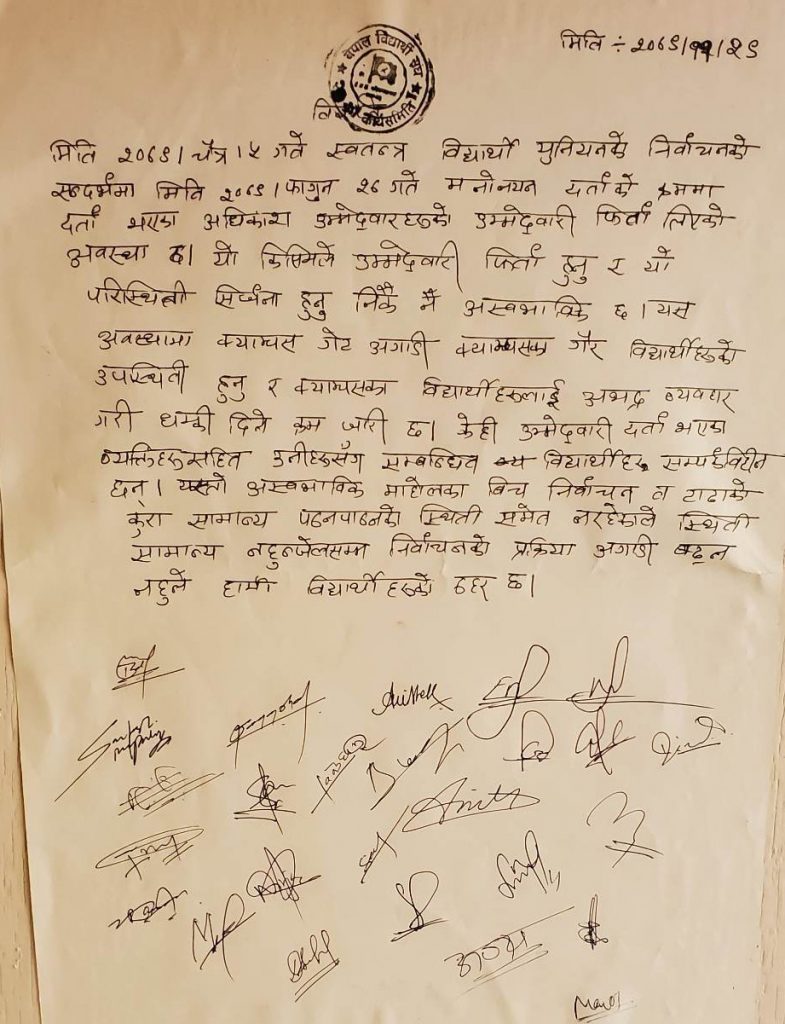 मिति ÷ २०७९।११।२९
नेपाल विद्यार्थी संघ
कार्यसमिति
वि
मिति २०७९। चैत्र। ५ गते स्वतन्त्र विद्यार्थी युनियनको निर्वाचनको
सन्दर्भमा मिति २०७९। फागुन २६ गते मनोनयन दर्ताको क्रममा
दर्ता भएका अधिकांश उम्मेदवारहरुको उम्मेदवारी फिर्ता लिएको
अवस्था छ। यो किसिमले उम्मेदवारी फिर्ता हुनु र यो
परिस्थिती सिर्जना हुनु निकै नै अस्वभाविक छ। यस
अवस्थामा क्याम्पस गेट अगाडी क्याम्पसका गैर विद्यार्थीहरुको
उपस्थिती हुनु र क्याम्पसका विद्यार्थीहरुलाई अभद्र व्यवहार
गरी धम्की दिने क्रम जारी छ। केही उम्मेदवारी दर्ता भएका
व्यक्तिहरुसहित उनीहरुसँग सम्बन्धित विद्यार्थीहरु सम्पर्कविहीन
छन्। यस्तो अस्वभाविक माहोलका बिच निर्वाचन त टाढाको
कुरा सामान्य पठनपाठनको स्थिती समेत नरहेकाले स्थिती
सामान्य नहुन्जेलसम्म निर्वाचनको प्रक्रिया अगाडी बढ्न
नहुने हामी विद्यार्थीहरुको ठहर छ।
Anita